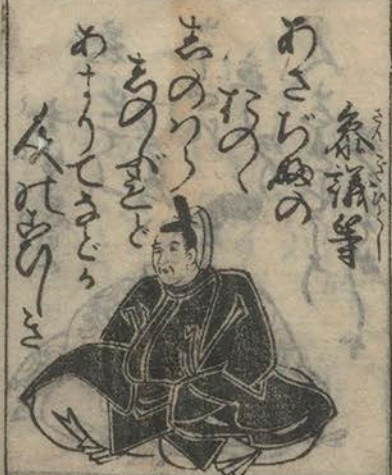 さんぎひとし
參議等
あさぢふの
おのゝ
志のハら
志のぶれど
あまりてなどか
人のこひしき